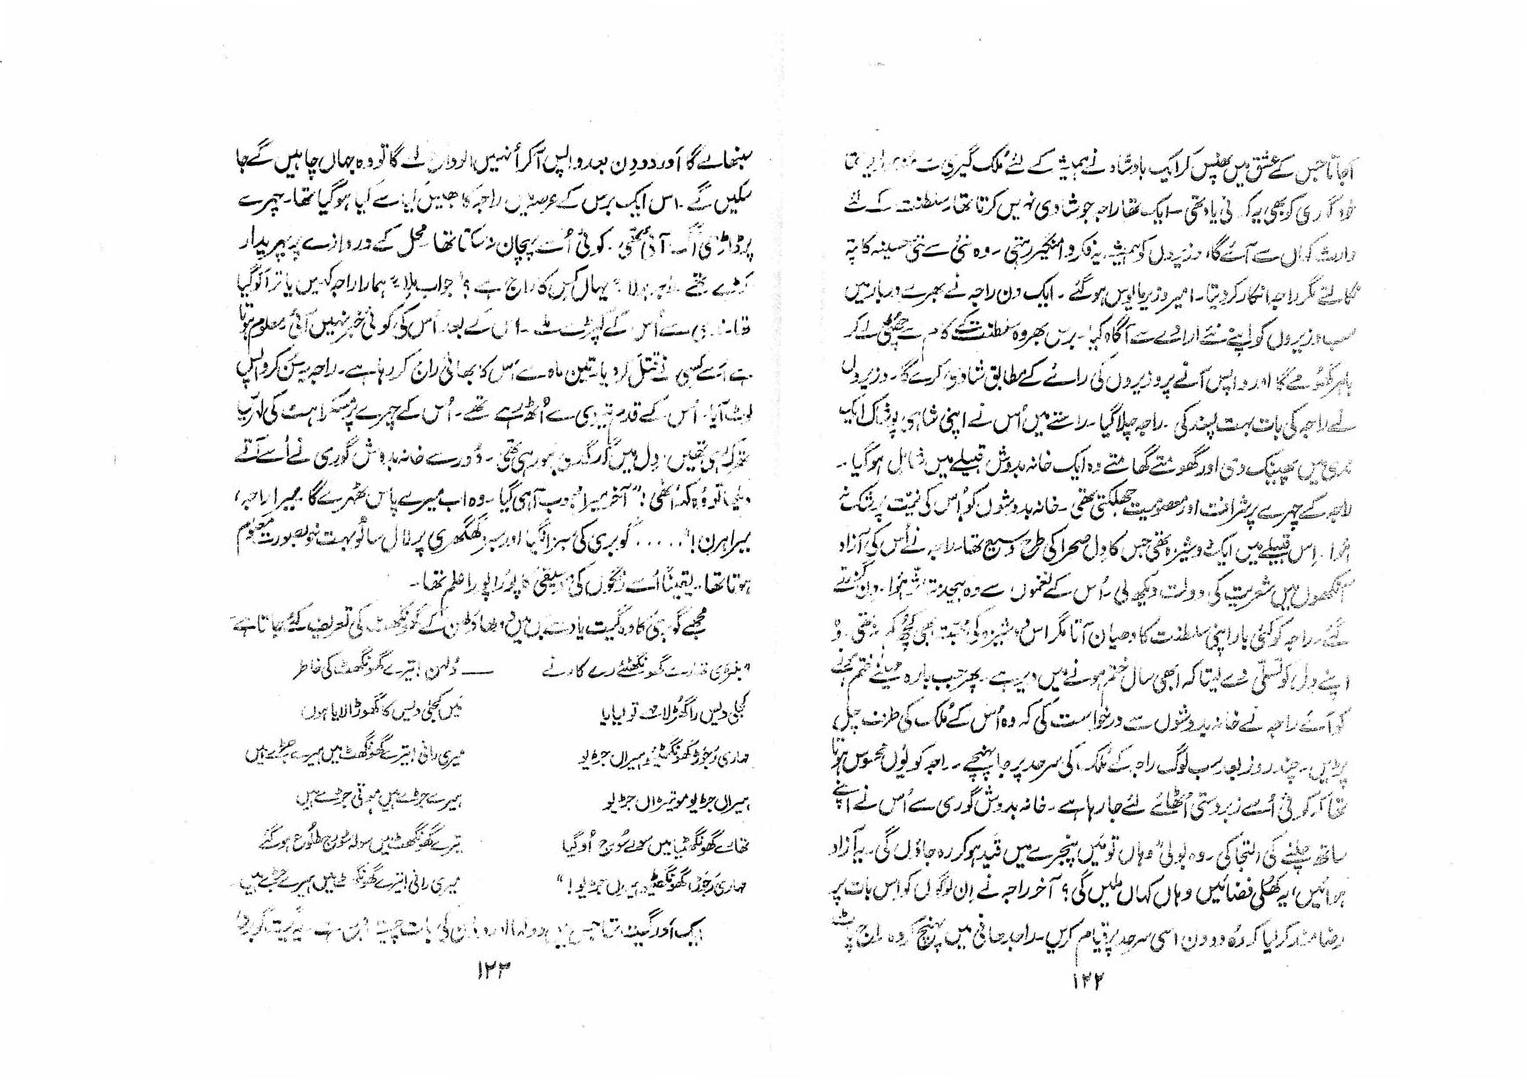 جس کے عشق میں پھنس کر ایک بادشاہ نے ہمیشہ کے لئے ملک گیری
کو بھی یہ کہانی یاد تھی۔ ایک تھا راجہ جو شادی نہیں کرتا تھا۔ سلطنت کے لئے
وارث کہاں سے آئے گا، وزیروں کو ہمیشہ یہ فکر دامنگیر رہتی۔ وہ نئی سے نئی حسینہ کا پتہ
لگاتے مگر راجہ انکار کر دیتا۔ امیر وزیر مایوس ہو گئے۔ ایک دن راجہ نے بھرے دربار میں
سب وزیروں کو اپنے نئے ارادے سے آگاہ کیا۔ برس بھر وہ سلطنت کے کام سے چھٹی لے کر
باہر گھومے گا اور واپس آنے پر وزیروں کی رائے کے مطابق شادی کرے گا۔ وزیروں
نے راجہ کی بات بہت پسند کی۔ راجہ چلا گیا۔ راستے میں اُس نے اپنی شاہی پوشاک ایک
ندی میں پھینک دی اور گھومتے گھامتے وہ ایک خانہ بدوش قبیلے میں شامل ہو گیا۔
راجہ کے چہرے پر شرافت اور معصومیت جھلکتی تھی۔ خانہ بدوشوں کو اُس کی نیّت پر شک نہ
ہوا۔ اِس قبیلے میں ایک دوشیزہ تھی جس کا دِل صحرا کی طرح وسیع تھا۔ راجہ نے اُس کی آزاد
آنکھوں میں شعریت کی دولت دیکھ لی۔ اُس کے نغموں سے وہ بیحد متاثر ہوا۔ دِن گزرتے
گئے۔ راجہ کو کئی بار اپنی سلطنت کا دھیان آتا مگر اس دوشیزہ کی محبت بھی کچھ کم نہ تھی۔ وہ
اپنے دِل کو تسلّی دے لیتا کہ ابھی سال ختم ہونے میں دیر ہے۔ پھر جب بارہ مہینے ختم ہونے
کو آئے راجہ نے خانہ بدوشوں سے درخواست کی کہ وہ اُس کے مُلک کی طرف چل
پڑیں۔ چند روز بعد سب لوگ راجہ کے مُلک کی سرحد پر جا پہنچے۔ راجہ کو یُوں محسوس ہوتا
تھا کہ کوئی اُسے زبردستی اُٹھائے لئے جا رہا ہے۔ خانہ بدوش گوری سے اُس نے اپنے
ساتھ چلنے کی التجا کی۔ وہ بولی "وہاں تو میں پنجرے میں قید ہو کر رہ جاؤں گی۔ یہ آزاد
ہوائیں، یہ کھُلی فضائیں وہاں کہاں ملیں گی؟ آخر راجہ نے اِن لوگوں کو اِس بات پر
رضامند کر لیا کہ وُہ دو دن اسی سرحد پر قیام کریں۔ راجدھانی میں پہنچ کر وہ راج پاٹ
۱۲۲
سنبھالے گا اَور دو دِن بعد واپس آکر اُنہیں لے گا تو وہ جہاں چاہیں گے جا
سکیں گے۔ اس ایک برس کے عرصے میں راجہ کا بھیس کیا سے کیا ہو گیا تھا۔ چہرے
پر ڈاڑھی اُگ آئی تھی۔ کوئی اُسے پہچان نہ سکتا تھا۔ محل کے دروازے پہ پہریدار
کھڑے تھے۔ راجہ بولا "یہاں کس کا راج ہے؟" جواب مِلا "ہمارا راجہ کہیں یاترا کو گیا
تھا۔ ندی سے اُس کے کپڑے ملے۔ اس کے بعد اُس کی کوئی خبر نہیں آئی۔ معلوم ہوتا
ہے اُسے کسی نے قتل کر دیا۔ تین ماہ سے اُس کا بھائی راج کر رہا ہے۔ راجہ یہ سُن کر واپس
لوٹ آیا۔ اُس کے قدم تیزی سے اُٹھ رہے تھے۔ اُس کے چہرے پر مسکراہٹ کی لہریاں
تھرک رہی تھیں۔ دِل میں گدگدی ہو رہی تھی۔ دُور سے خانہ بدوش گوری نے اُسے آتے
دیکھا تو وہ کہہ اُٹھی! "آخر میرا محبوب آ ہی گیا۔ وہ اب میرے پاس ٹھہرے گا۔ میرا راجہ،
میرا ہرن!" ..... گوبری کی سبز انگیا اور سبز گھگھری پر لال سالُو بہت خوبصورت معلوم
ہوتا تھا۔ یقیناً اُسے رنگوں کی موسیقی کا پُورا پورا علم تھا۔
مجھے گوبری کا وہ گیت یاد ہے جس میں دُلہن کے گھونگھٹ کی تعریف کی جاتی ہے
گھونگھٹئے رے کارنے — دُلہن! تیرے گھونگھٹ کی خاطر
کچھی دیس را گھڑلا تو لیایا میں کچھی دیس کا گھوڑا لایا ہوں
مھاری رجوڑ گھونگھٹئے ہیراں جڑیو میری رانی! تیرے گھونگھٹ میں ہیرے جڑے ہیں
ہیراں جڑیو موتیڑاں جڑیو ہیرے جڑے ہیں موتی جڑے ہیں
تھارے گھونگھٹیا میں سولے سُورج اُوگیا تیرے گھونگھٹ میں سولہ سورج طلُوع ہو گئے
مھاری رجوڑ گھونگھٹئے ہیراں جڑیو!" میری رانی! تیرے گھونگھٹ میں ہیرے جڑے ہیں
ایک اَور گیت تھا جس میں دولہا اور دُلہن کی بات چیت
۱۲۳